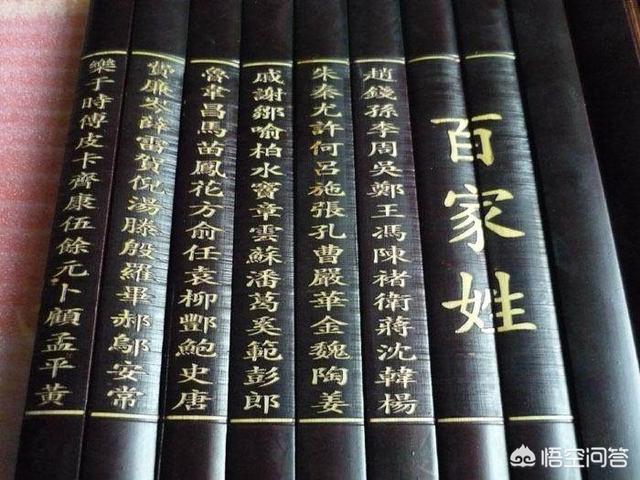 百家姓
趙錢孫李周吳鄭王馮陳褚衛蔣沈韓楊
朱秦尤許何呂施張孔曹嚴華金魏陶姜
戚謝鄒喻柏水竇章雲蘇潘葛奚範彭郎
魯韋昌馬苗鳳花方俞任袁柳酆鮑史唐
費廉岑薛雷賀倪湯滕殷羅畢郝鄔安常
樂于時傅皮卡齊康伍餘元卜顧孟平黃
悟空问答